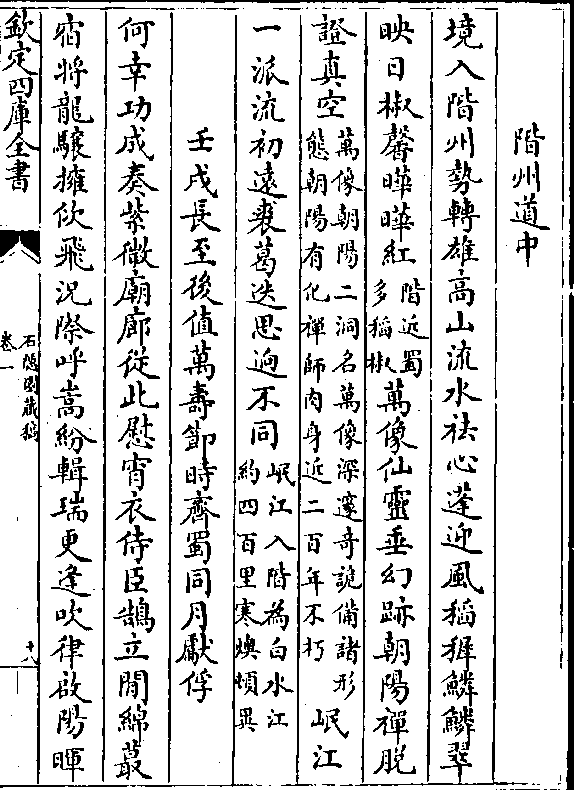 階州道中
境入階州勢轉雄高山流水祛心蓬迎風稻稚鱗鱗翠
映日椒馨曄曄紅階近蜀多稻椒萬像仙靈垂幻跡朝陽禪脫
證真空萬像朝陽二洞名萬像深邃奇詭備諸形態朝陽有化禪師肉身近二百年不朽岷江
一派流初遠裘葛迭思逈不同岷江入階為白水江約四百里寒燠頓異
壬戌長至後值萬壽節時齊蜀同月獻俘
何幸功成奏紫微廟廊從此慰宵衣侍臣鵠立閒綿蕞
宿將龍驤擁佽飛況際呼嵩紛輯瑞更逢吹律啟陽暉
欽定四庫全書
石隱園藏稿
卷一
十八